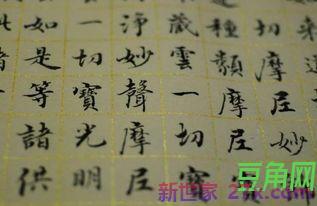 來
切摩尼妙
種類摩尼
藏雲一切寶
淨妙聲摩尼
一切寶光明
如是等諸供
此
新世家
豆角网